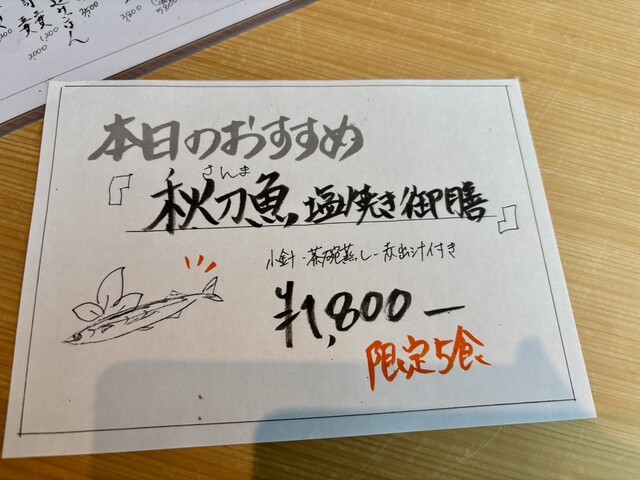 本日のおすすめ
さんま
『秋刀魚塩焼き御膳』
小針・茶碗蒸し・赤出汁付き
¥1,800ー
限定5食